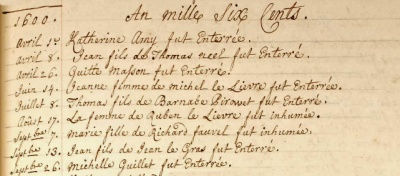 1600. An mille Six Cents.
Avril 12. Katherine Amy fut Enterrée.
Avril 8. Jean fils de Thomas neel fut Enterré.
Avril 26. Guitte Masson fut Enterré.
Juin 14. Jeanne femme de michel le Lievre fut Enterrée.
Juillet 8. Thomas fils de Barnabe Perowet fut Enterré.
Aoust 17. La femme de Ruben le Lievre fut inhumée.
Septbre 7. marie fille de Richard fauvel fut inhumée.
Septbre 13. Jean fils de Jean le Gras fut Enterré.
Septbre 26. Michelle Guillet fut Enterrée.